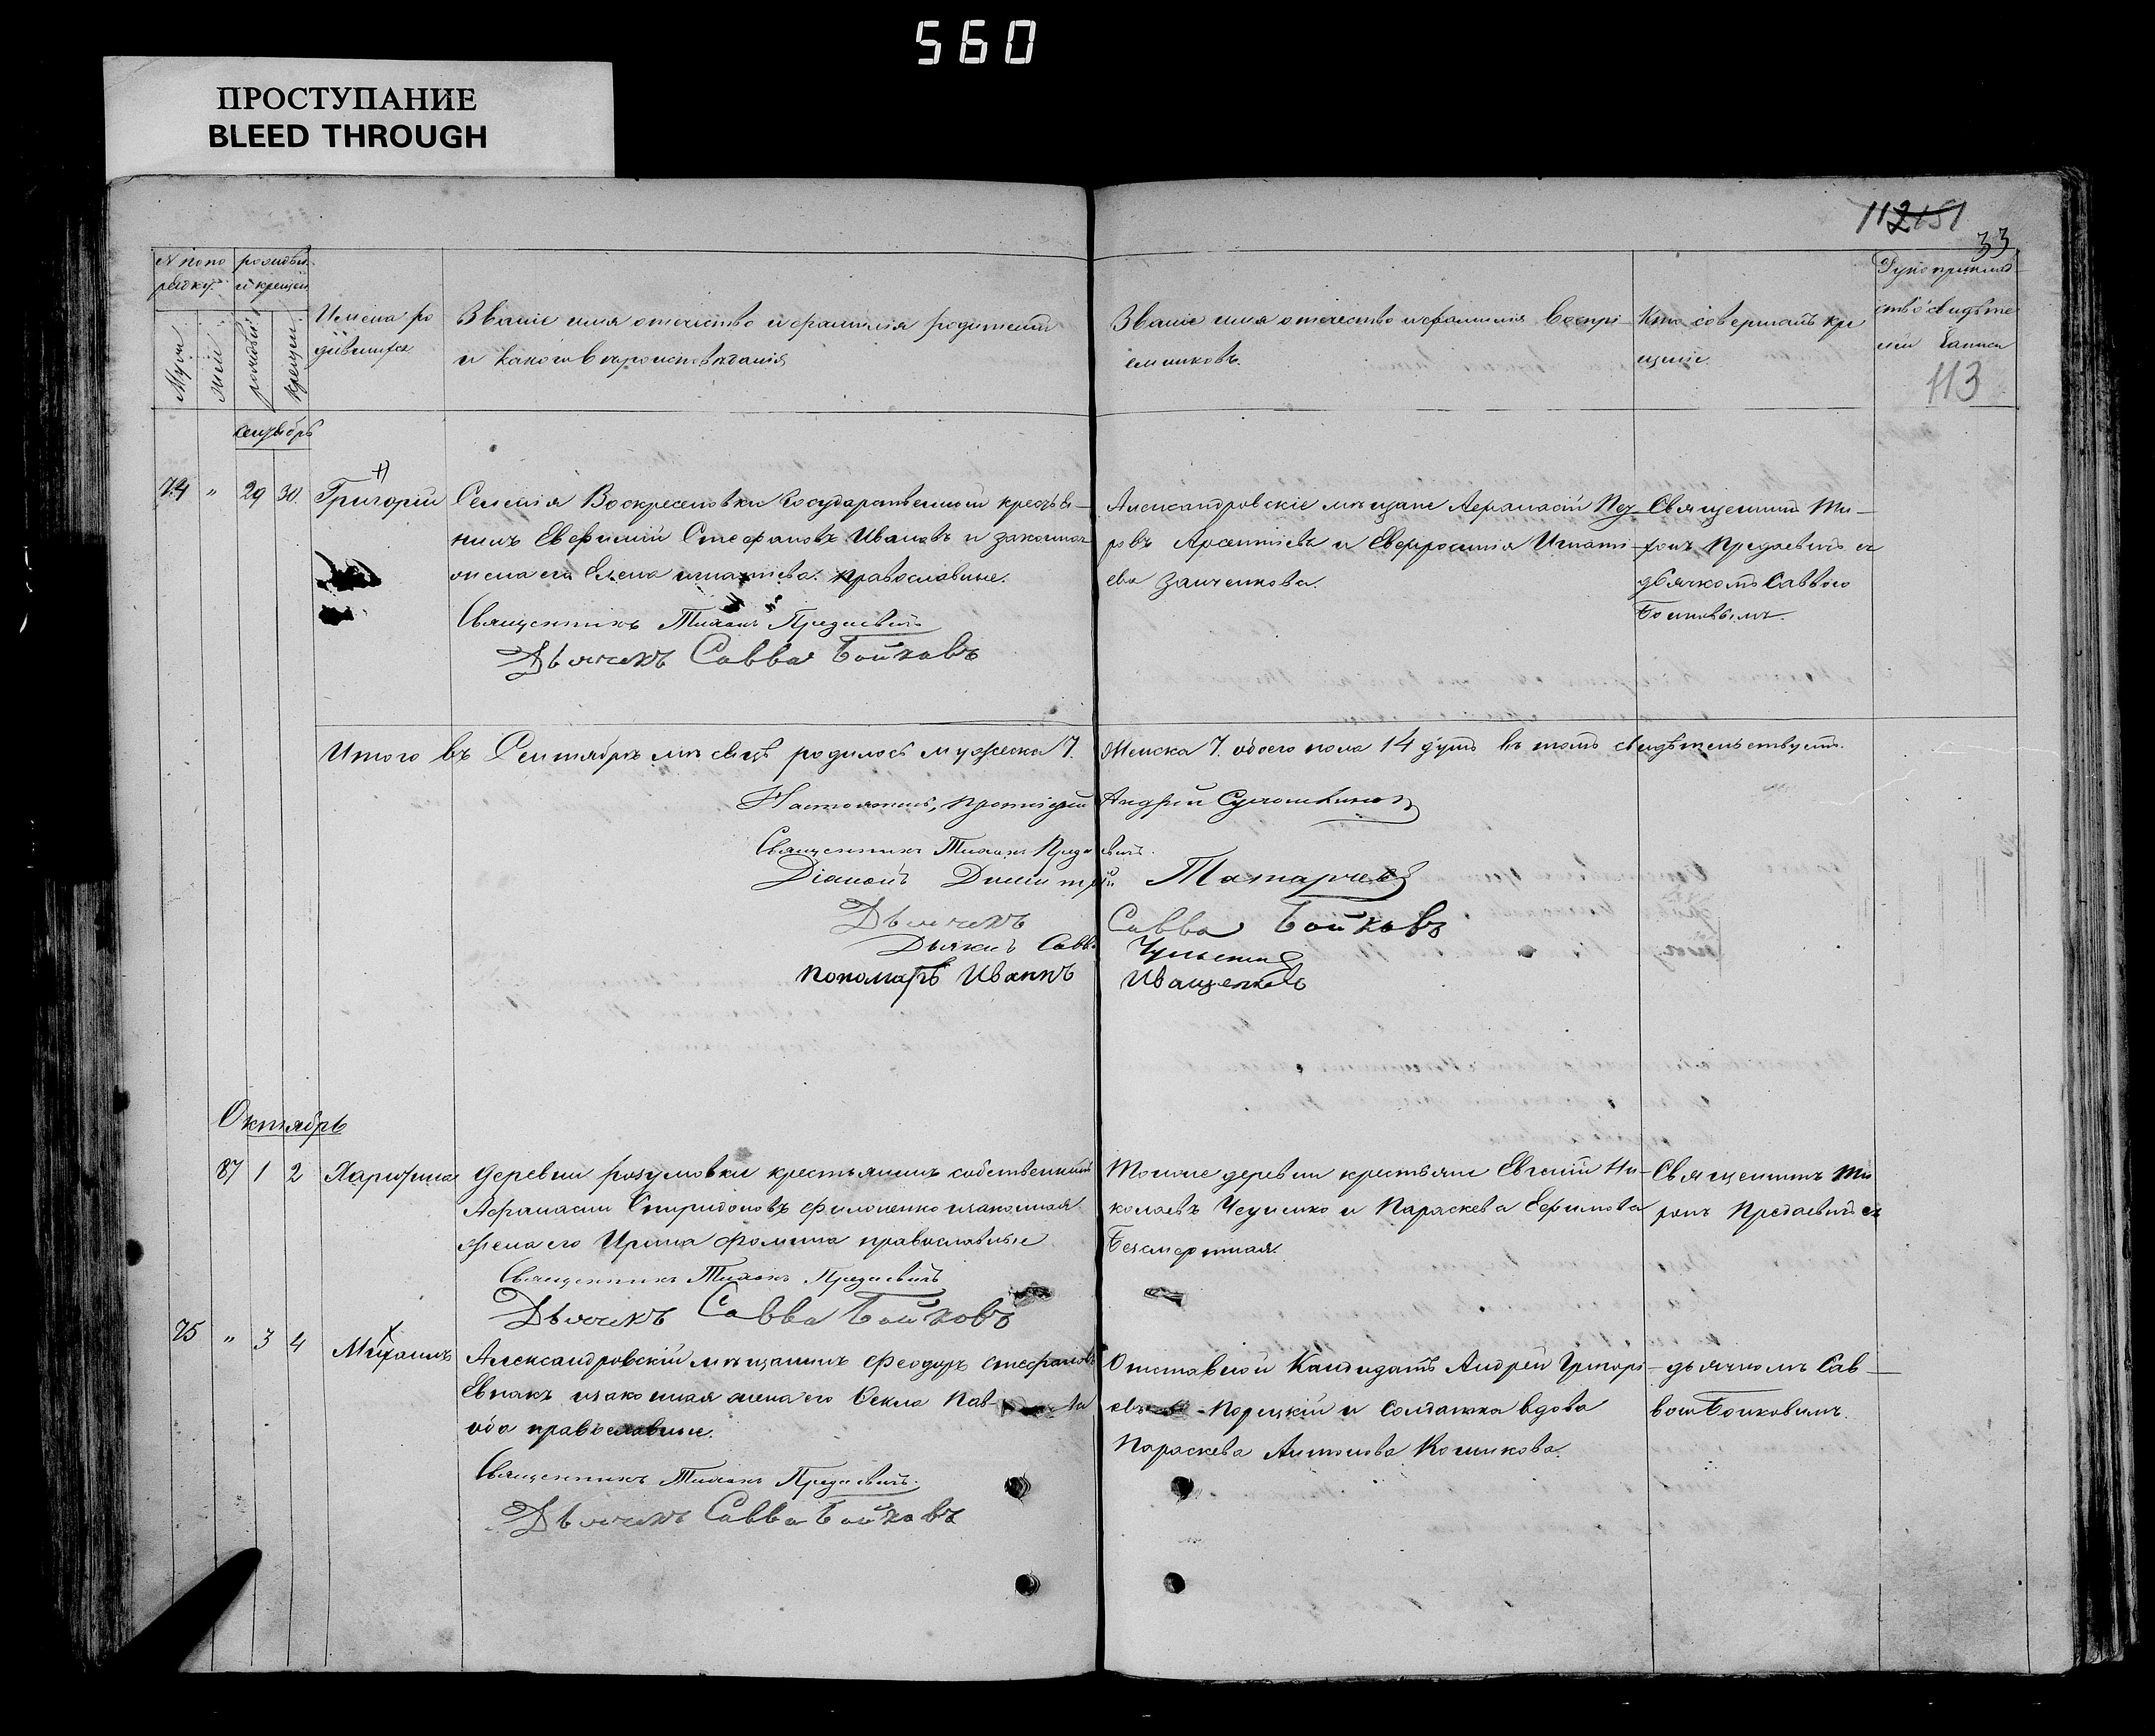 560
ПРОСТУПАНИЕ
BLEED THROUGH
112 151
33
113
Имена ро
Званіе имя отечество и фамилія родителей
и какого вѣроисповѣданія
Званіе имя отечество и фамилія воспрі-
емниковъ.
Кто совершалъ кре
щеніе
Мужи
рожденія
крещен.
сентябрь
74 " 29 30. Григорій
Селенія Воскресеновки Государственной крестья-
нинъ Евфимій Стефановъ Ивановъ и законная
жена его Елена Игнатіева. православные.
Священникъ Тихонъ Предаевичъ
Дьячекъ Савва Бойковъ
Александровскіе мѣщане Афанасій Пет-
ровъ Арсентіевъ и Евфросинія Игнаті-
ева Заиченкова.
Священникъ Ти-
хонъ Предаевичъ съ
дьячкомъ Саввою
Бойковымъ.
Итого въ Сентябрѣ мѣсяцѣ родилось мужеска 7. Женска 7. обоего пола 14 душъ въ томъ свидѣтельствуемъ.
Настоятель, протоіерей Андрей
Священникъ Тихонъ Предаевичъ.
Діаконъ Димитрій Татарчевъ
Дьячекъ Савва Бойковъ
Дьячекъ Савва
пономарь Иваннъ Иващенковъ
Октябрь
87 1 2 Харитина
деревни розумовки крестьянинъ собственникъ
Афанасій Спиридоновъ Филоненко и законная
жена его Ирина Фомина православные
Священникъ Тихонъ Предаевичъ
Дьячекъ Савва Бойковъ
Тойже деревни крестьяне Евгеній Ни-
колаевъ и Параскева Ефимова
Безсмертная.
Священникъ Ти
хонъ Предаевичъ съ
75 " 3 4 Михаилъ
Александровскій мѣщанинъ Феодоръ Стефановъ
Евпакъ и законная жена его Фекла Пав-
оба православные.
Священникъ Тихонъ Предаевичъ.
Дьячекъ Савва Бойковъ
Отставной Кандидатъ Андрей Григорі-
евъ Порецкій и солдатка вдова
Параскева Антонова Кошикова.
дьячкомъ Сав-
вою Бойковымъ.